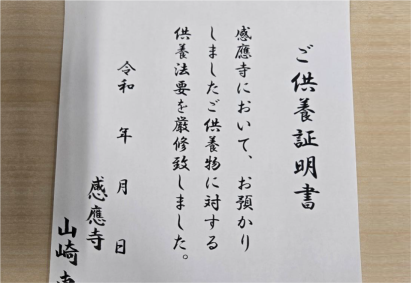 ご供養証明書
感應寺において、お預かり
しましたご供養物に対する
供養法要を厳修致しました。
令和　年　月　日
感應寺
山崎